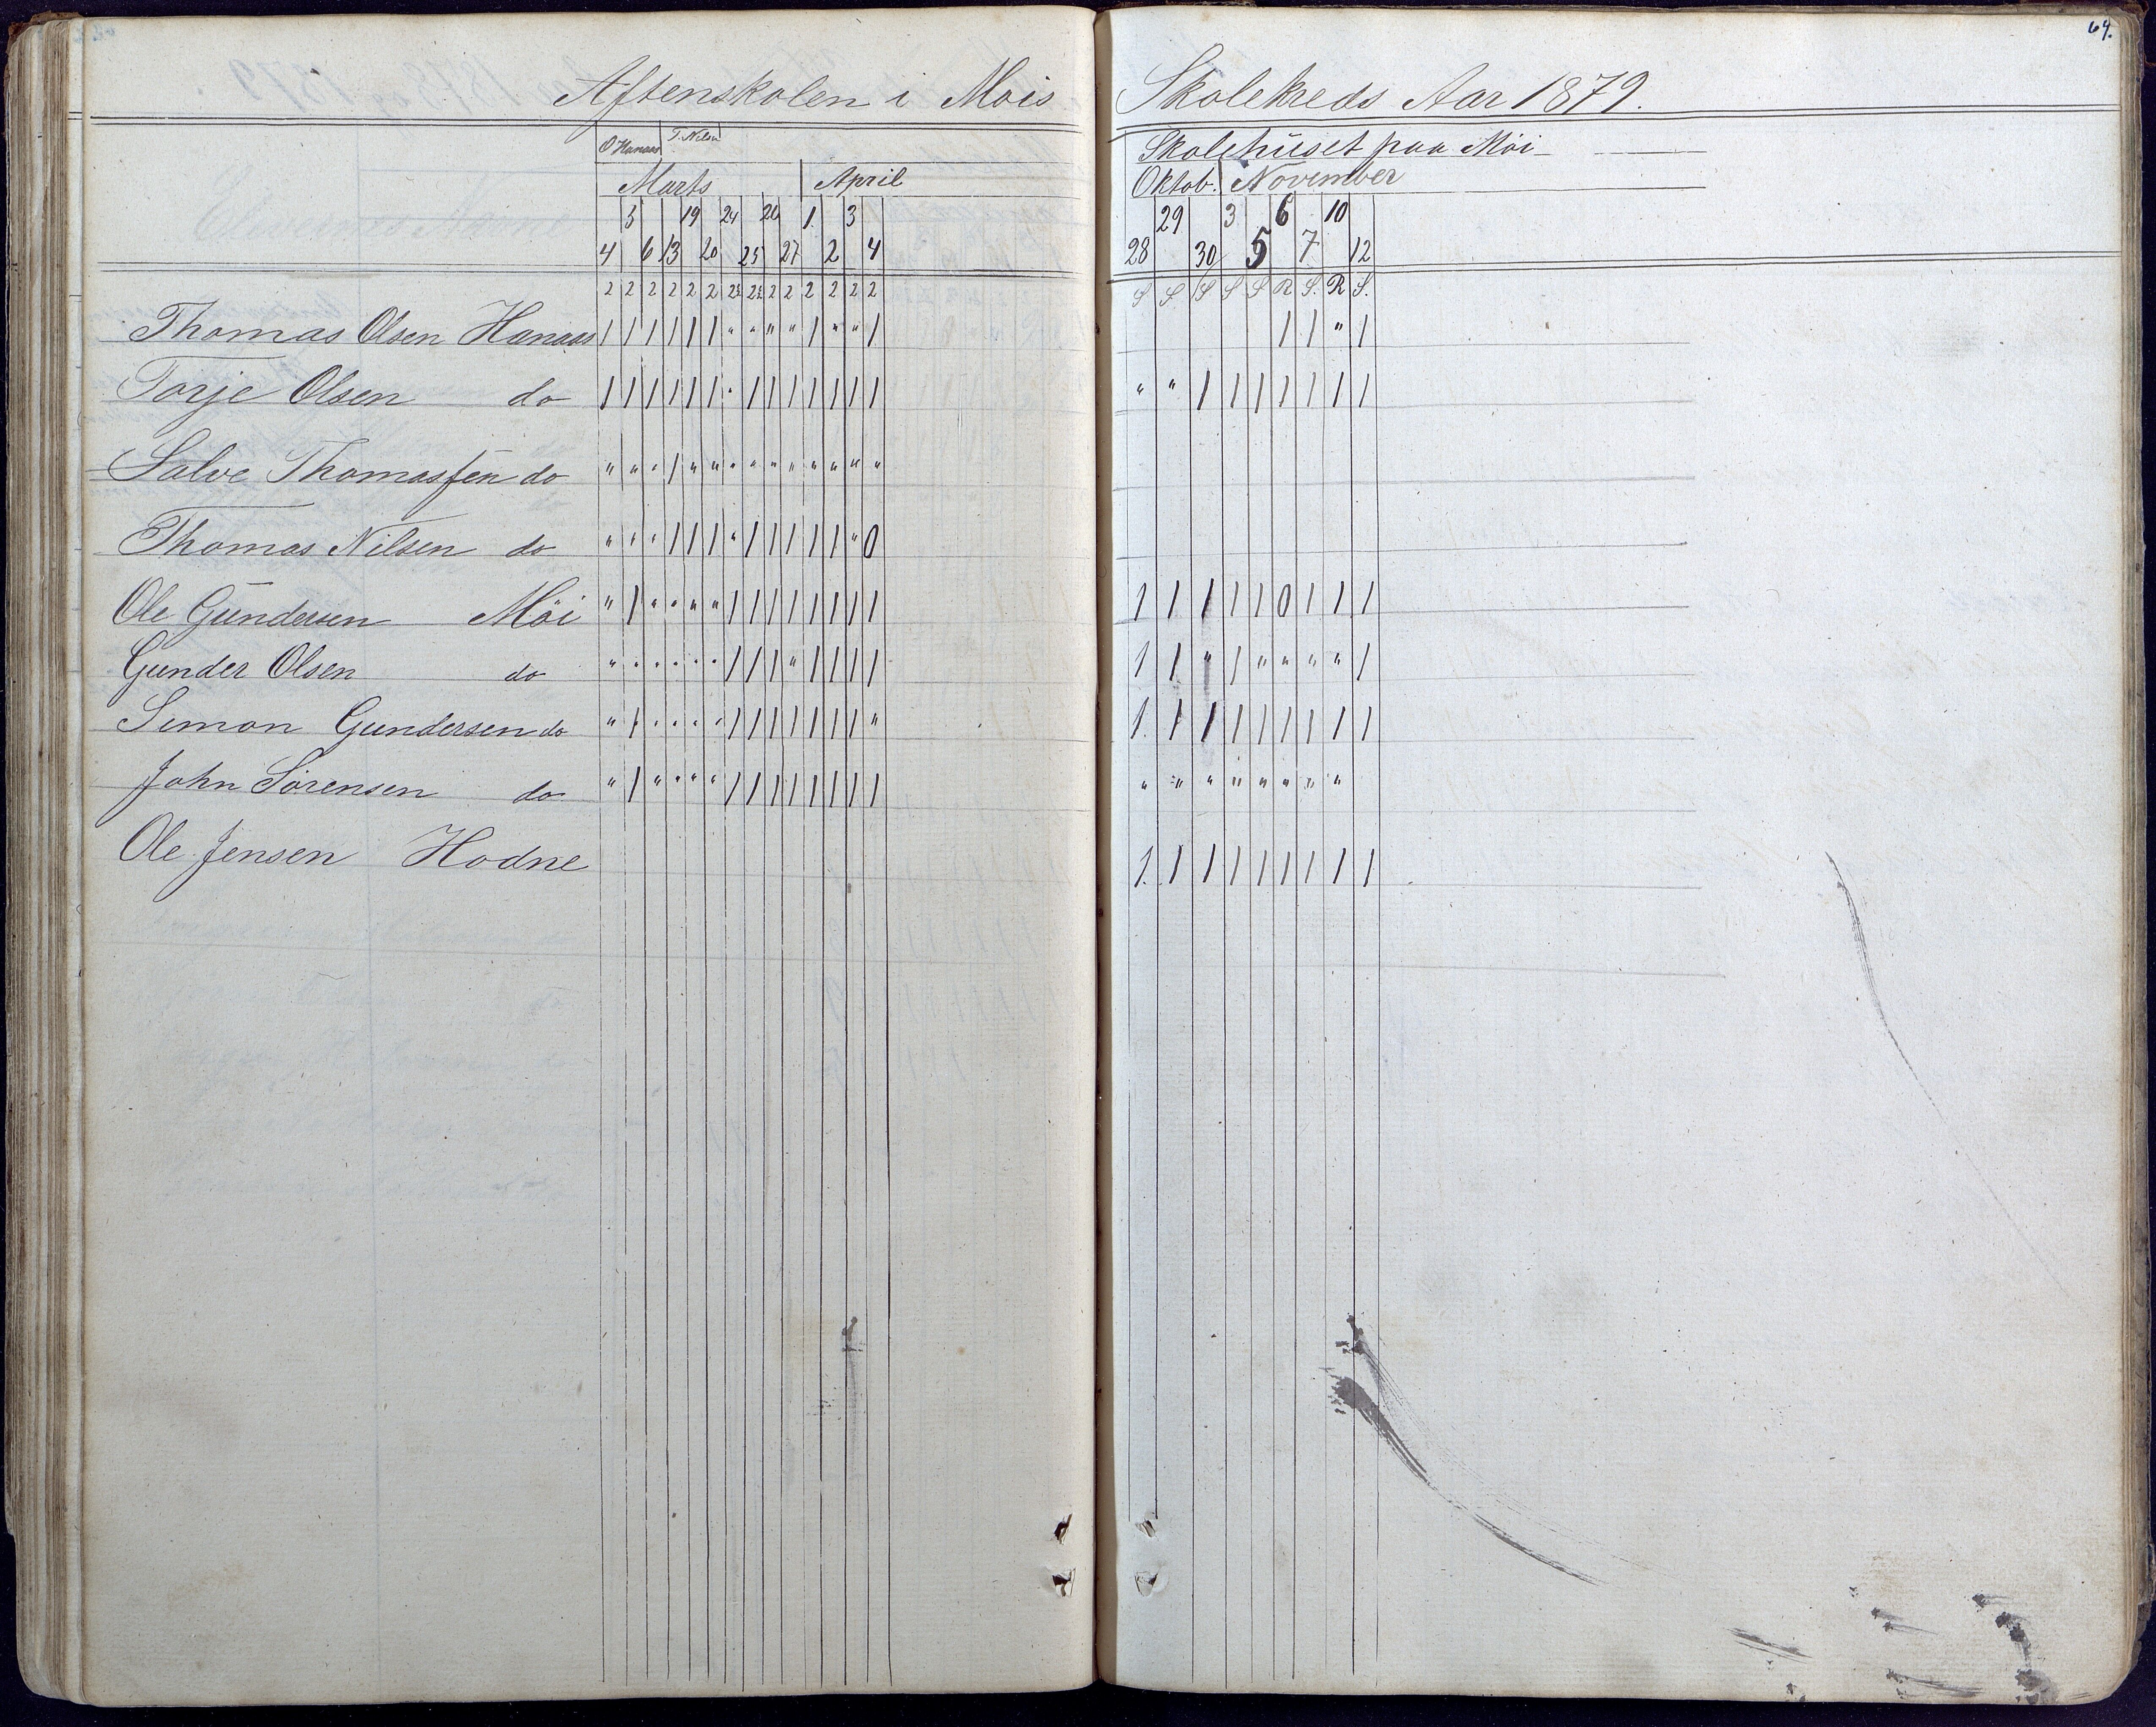 64.
Aftenskolen i Mois Skolekreds Aar 1879.
O Hanaas T. Nilsen Skolehuset paa Möi
Marts April Oktob. November
5 19 24 26 1 3 29 3 6 10
4 6 13 20 25 27 2 4 28 30 5 7 12
2 2 2 2 2 2 2½ 2½ 2 2 2 2 2 2 S S S S S R S. R S.
Thomas Olsen Hanaas 1 1 1 1 1 1 " " " " 1 " " 1 1 1 " 1
Torje Olsen do 1 1 1 1 1 1 " 1 1 1 1 1 1 1 " " 1 1 1 1 1 1 1
Salve Thomassen do " " " 1 " " " " " " " " " "
Thomas Nilsen do " " " 1 1 1 " 1 1 1 1 1 " 0
Ole Gundersen Möi " 1 " " " " 1 1 1 1 1 1 1 1 1 1 1 1 1 0 1 1 1
Gunder Olsen do " " " " " " 1 1 1 " 1 1 1 1 1 1 " 1 " " " " 1
Simon Gundersen do " 1 " " " " 1 1 1 1 1 1 1 " 1. 1 1 1 1 1 1 1 1
John Sörensen do " 1 " " " " 1 1 1 1 1 1 1 1 " " " " " " " "
Ole Jensen Hodne 1. 1 1 1 1 1 1 1 1